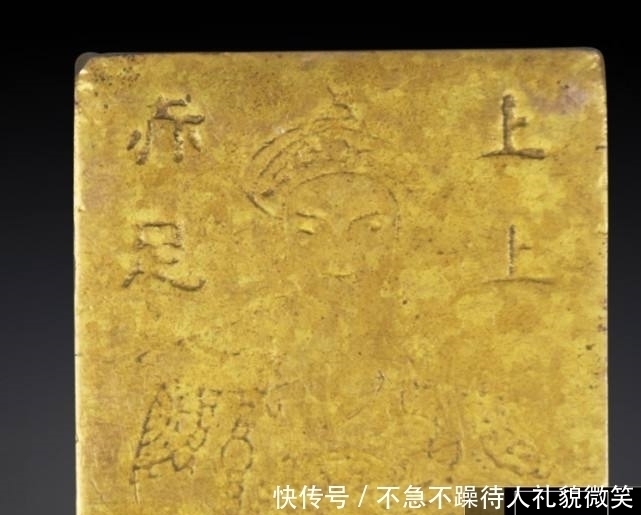 上上
赤足
快传号 / 不急不躁待人礼貌微笑